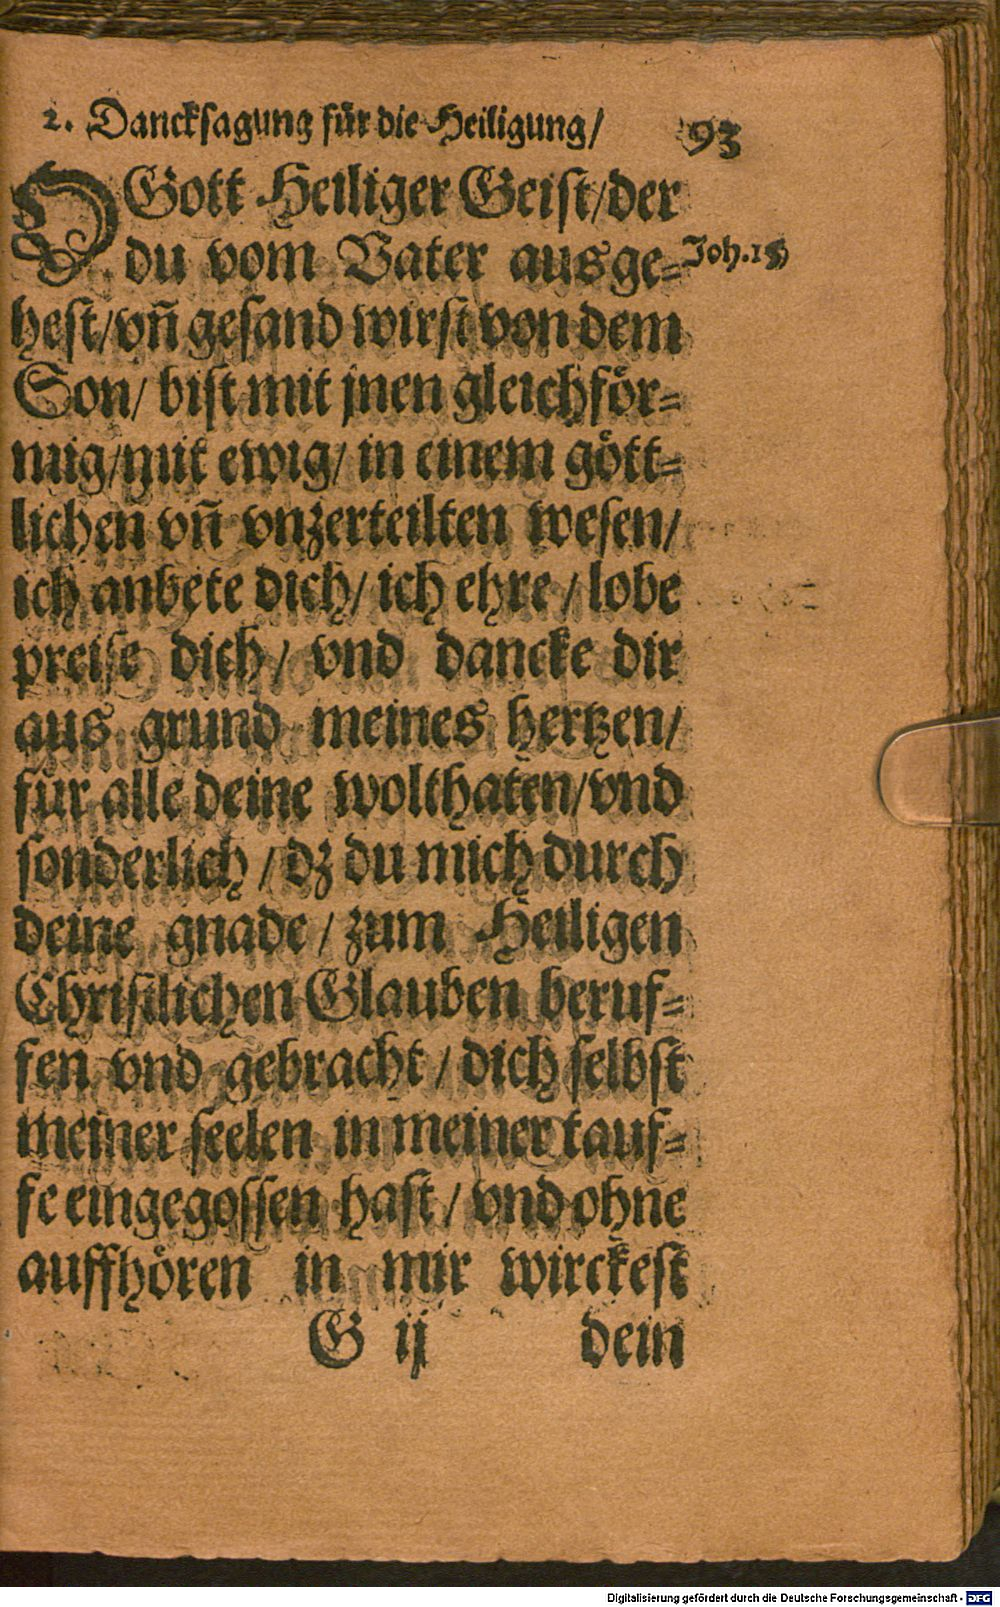 2. Dancksagung für die Heiligung/ 93
O Gott Heiliger Geist/der
du vom Vater ausge= Joh.15
hest/vñ gesand wirst von dem
Son/ bist mit jnen gleichför=
mig/mit ewig/ in einem gött=
lichen vñ vnzerteilten wesen/
ich anbete dich/ ich ehre / lobe
preise dich/ vnd dancke dir
aus grund meines hertzen/
für alle deine wolthaten/vnd
sonderlich / dz du mich durch
deine gnade / zum Heiligen
Christlichen Glauben beruf=
fen vnd gebracht / dich selbst
meiner seelen in meiner tauf=
fe eingegossen hast / vnd ohne
auffhören in mir wirckest
G ij dein
Digitalisierung gefördert durch die Deutsche Forschungsgemeinschaft - DFG